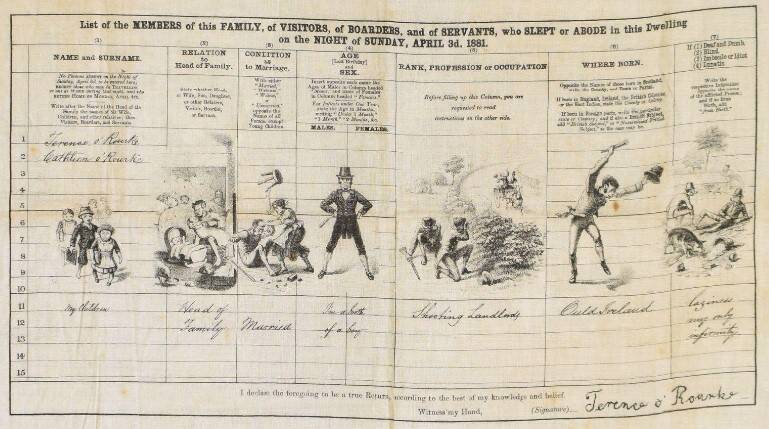 List of the MEMBERS of this FAMILY, of VISITORS, of BOARDERS, and of SERVANTS, who SLEPT or ABODE in this Dwelling
on the NIGHT of SUNDAY, APRIL 3d. 1881.
(1)
NAME and SURNAME.
No Person absent on the Night of
Write after the Name of the Head of the
Family the names of his Wife,
Children, and other relatives; then
Visitors, Boarders, and Servants.
(2)
RELATION
to
Head of Family.
State whether Head,
or Wife, Son, Daughter,
or other Relative,
Visitor, Boarder,
or Servant.
(3)
CONDITION
as
to Marriage.
Write either
"Married,"
"Widower,"
"Widow,"
or
"Unmarried,"
opposite the
Name of all
Persons except
Young Children
(4)
AGE
[Last Birthday]
and
SEX.
Insert opposite each name the
Ages of Males in Column headed
"Males," and those of Females
in Column headed "Females."
For Infants under One Year,
state the Age in Months,
writing "Under 1 Month,"
"1 Month," "2 Months," &c.
MALES. FEMALES.
RANK, PROFESSION or OCCUPATION
Before filling up this Column, you are
requested to read
instructions on the other side.
(6)
WHERE BORN.
Opposite the Names of those born in Scotland,
write the County, and Town or Parish.
If born in England, Ireland, the British Colonies,
or the East Indies, state the Country or Colony.
If born in Foreign parts, write the particular
state or Country; and if also a British Subject,
add "British Subject," or "Naturalised British
Subject," as the case may be.
(7)
If (1) Deaf and Dumb
(2) Blind
(3) Imbecile or Idiot
(4) Lunatic
Write the
respective Infirmities
Opposite the name
of the afflicted Person;
and if so from
Birth, add
"from Birth."
1 Terence o'Rourke
2 Cathleen o'Rourke
3
4
5
6
7
8
9
10
11 My Children Head of I'm a both Shooting Landlords Ould Ireland laziness
12 Family Married of a boy my only
13 infirmity
14
15
I declare the foregoing to be a true Return, according to the best of my knowledge and belief.
Witness my Hand, (Signature) Terence o' Rourke